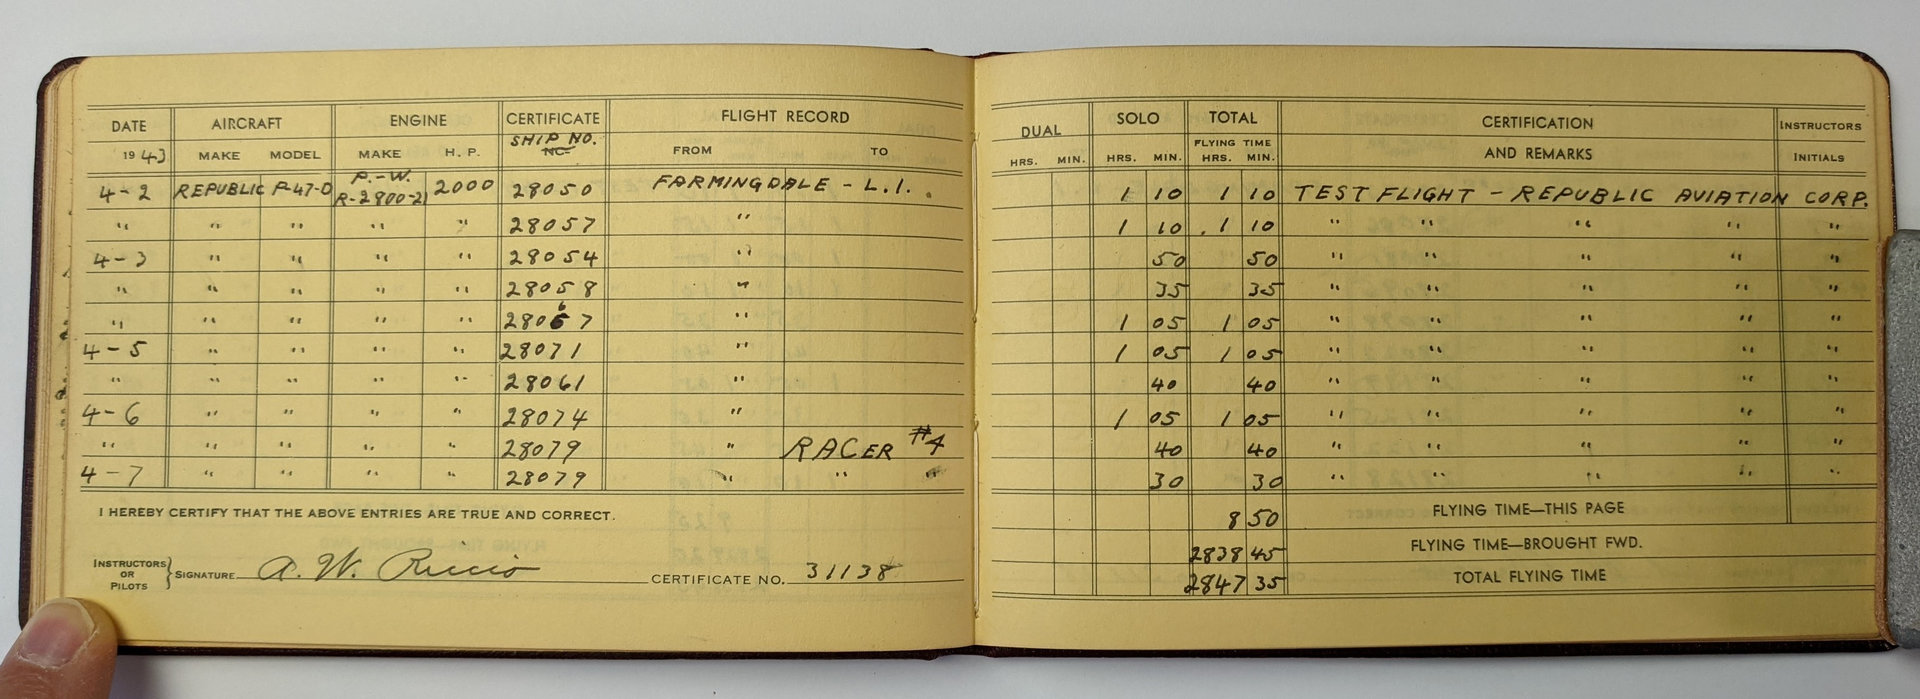 DATE AIRCRAFT ENGINE CERTIFICATE FLIGHT RECORD DUAL SOLO TOTAL CERTIFICATION INSTRUCTORS
1943 MAKE MODEL MAKE H. P. SHIP NO. NC- FROM TO HRS. MIN. HRS. MIN. FLYING TIME HRS. MIN. AND REMARKS INITIALS
4-2 REPUBLIC P-47-D P.-W. R-2800-21 2000 28050 FARMINGDALE - L.I. 1 10 1 10 TEST FLIGHT - REPUBLIC AVIATION CORP.
" " " " " 28057 " 1 10 1 10 " " " " "
4-3 " " " " 28054 " 50 50 " " " " "
" " " " " 28058 " 35 35 " " " " "
" " " " " 28067 " 1 05 1 05 " " " " "
4-5 " " " " 28071 " 1 05 1 05 " " " " "
" " " " " 28061 " 40 40 " " " " "
4-6 " " " " 28074 " 1 05 1 05 " " " " "
" " " " " 28079 " RACER #4 40 40 " " " " "
4-7 " " " " 28079 " " " 30 30 " " " " "
I HEREBY CERTIFY THAT THE ABOVE ENTRIES ARE TRUE AND CORRECT.
8 50 FLYING TIME—THIS PAGE
2838 45 FLYING TIME—BROUGHT FWD.
2847 35 TOTAL FLYING TIME
INSTRUCTORS OR PILOTS } SIGNATURE A. W. Riccio CERTIFICATE NO. 31138